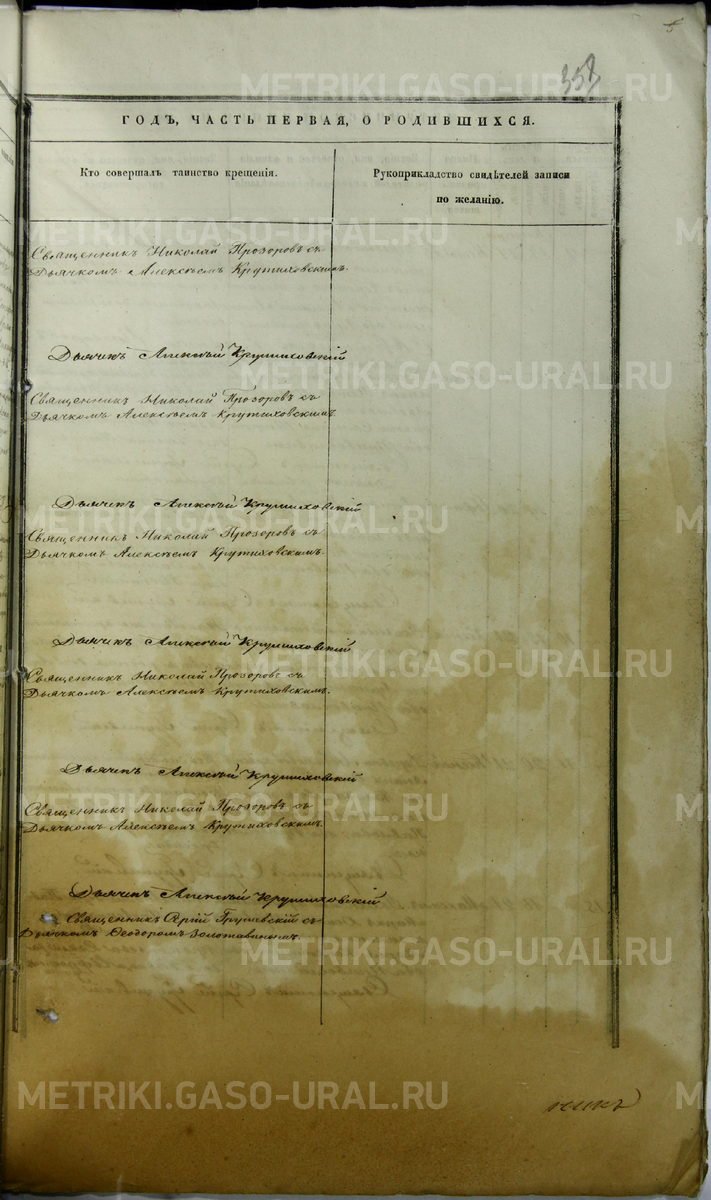 5
353
ГОДЪ, ЧАСТЬ ПЕРВАЯ, О РОДИВШИХСЯ.
Кто совершалъ таинство крещенія.
Рукоприкладство свидѣтелей записи
по желанію.
Священникъ Николай Прозоровъ съ
Дьячкомъ Алексѣемъ Крутиховскимъ.
Дьячекъ Алексѣй Крутиховскій
Священникъ Николай Прозоровъ съ
Дьячкомъ Алексѣемъ Крутиховскимъ
Дьячекъ Алексѣй Крутиховскій
Священникъ Николай Прозоровъ съ
Дьячкомъ Алексѣемъ Крутиховскимъ.
Дьячекъ Алексѣй Крутиховскій
Священникъ Николай Прозоровъ съ
Дьячкомъ Алексѣемъ Крутиховскимъ.
Дьячекъ Алексѣй Крутиховскій
Священникъ Николай Прозоровъ съ
Дьячкомъ Алексѣемъ Крутиховскимъ.
Дьячекъ Алексѣй Крутиховскій
Священникъ Сергій съ
Дьячкомъ Ѳеодоромъ Золотавинымъ.
никъ
METRIKI.GASO-URAL.RU